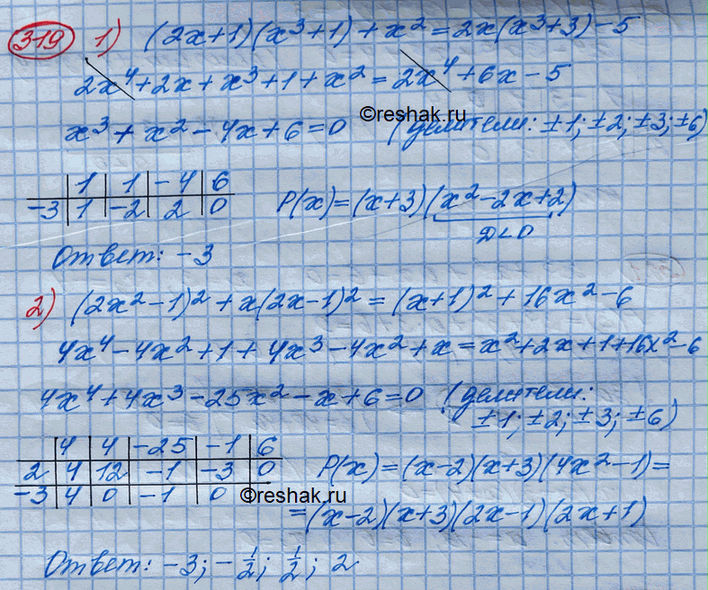 319 1) (2x+1)(x³+1)+x²=2x(x³+3)-5
2x⁴+2x+x³+1+x²=2x⁴+6x-5
©reshak.ru
x³+x²-4x+6=0 (делители: ±1; ±2; ±3; ±6)
| 1 | 1 | -4 | 6
-3 | 1 | -2 | 2 | 0
P(x)=(x+3)(x²-2x+2)
D<0
Ответ: -3
2) (2x²-1)²+x(2x-1)²=(x+1)²+16x²-6
4x⁴-4x²+1+4x³-4x²+x=x²+2x+1+16x²-6
4x⁴+4x³-25x²-x+6=0 (делители:
±1; ±2; ±3; ±6)
| 4 | 4 | -25 | -1 | 6
2 | 4 | 12 | -1 | -3 | 0
-3 | 4 | 0 | -1 | 0
©reshak.ru
P(x)=(x-2)(x+3)(4x²-1)=
=(x-2)(x+3)(2x-1)(2x+1)
Ответ: -3; -1/2; 1/2; 2